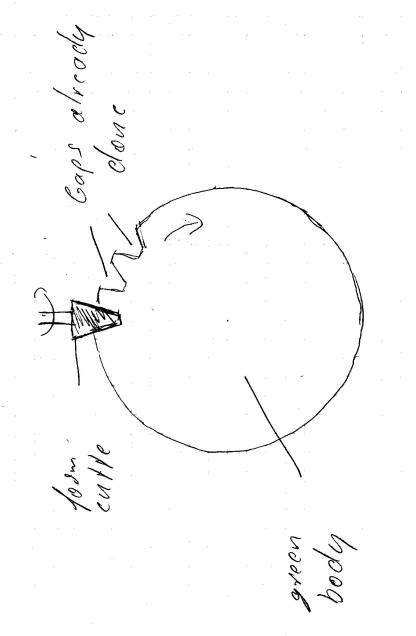 Gaps already
done
form
cutte
green
body